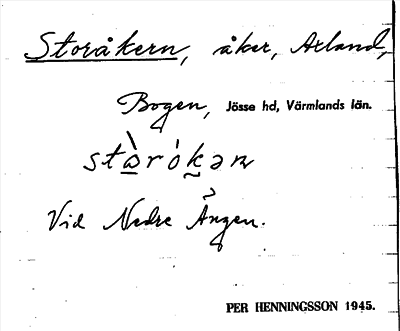 Storåkern, åker, Arland,
Bogen, Jösse hd, Värmlands län.
stɷ̀rókən
Vid Nedre Ången.
PER HENNINGSSON 1945.